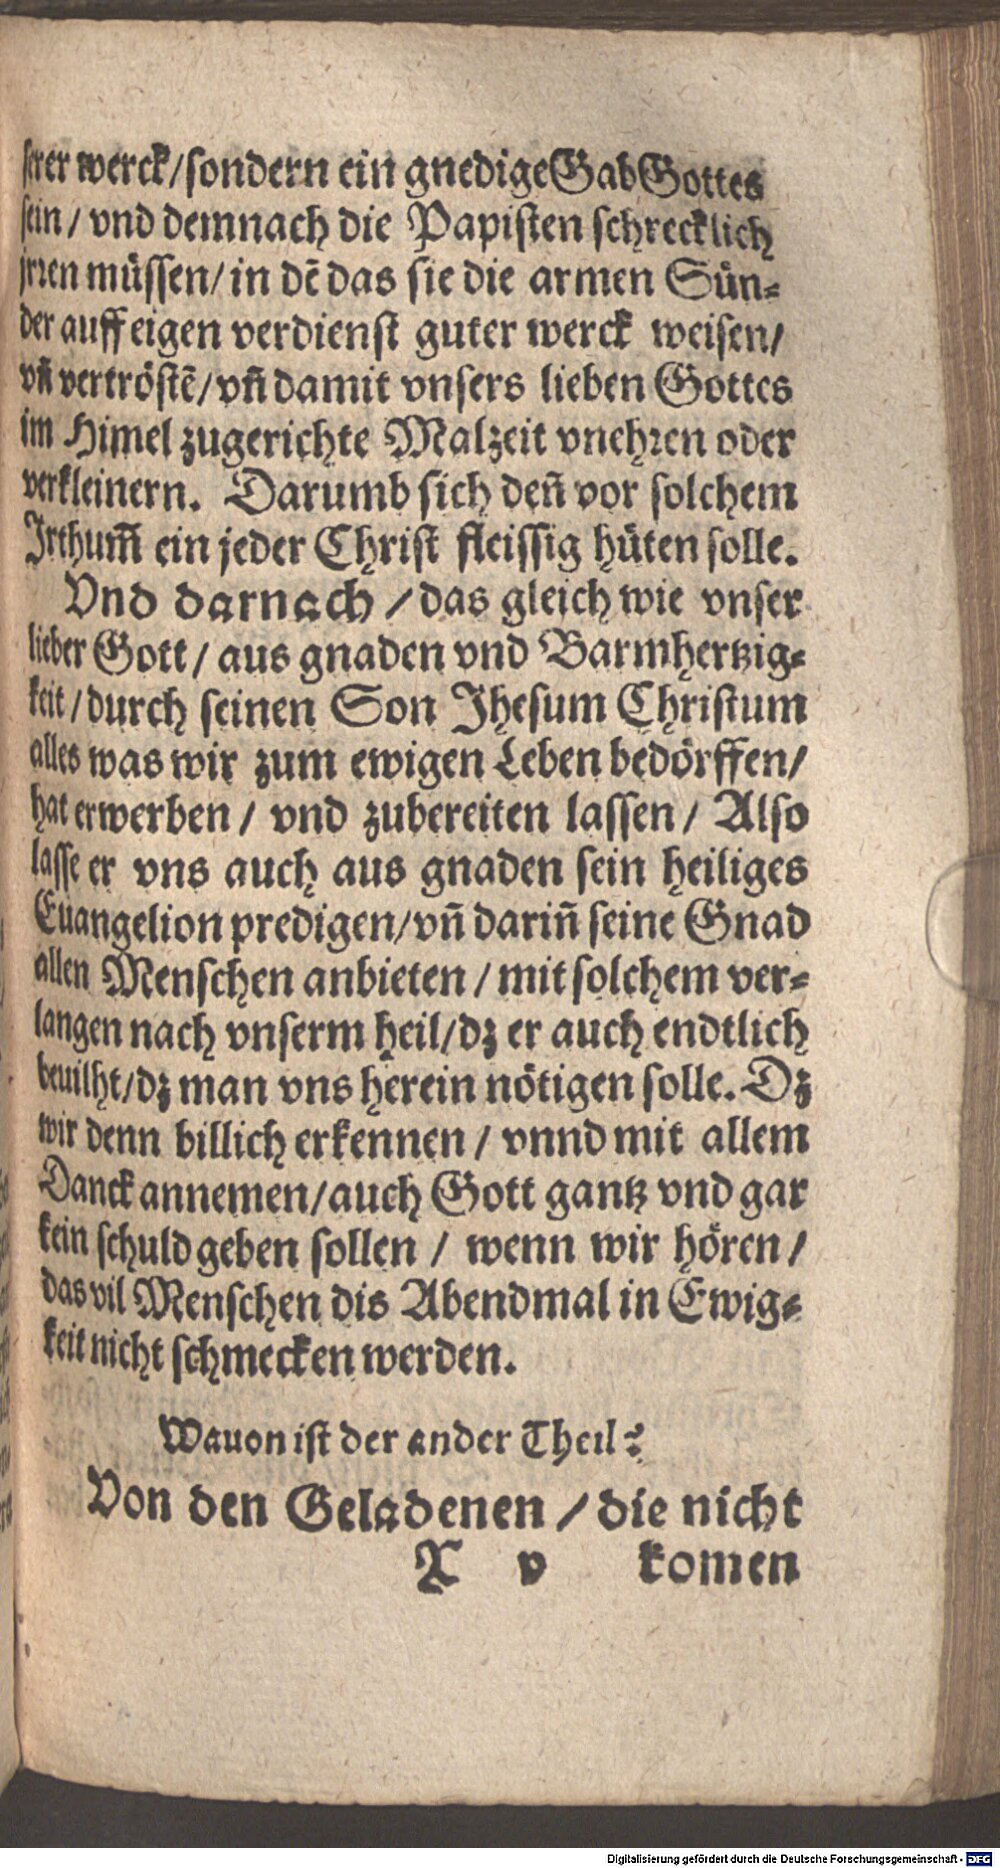 serer werck/sondern ein gnedige Gab Gottes
sein/ vnd demnach die Papisten schrecklich
jrren müssen/in dē das sie die armen Sün⸗
der auff eigen verdienst guter werck weisen/
vñ vertröstē/vñ damit vnsers lieben Gottes
im Himel zugerichte Malzeit vnehren oder
verkleinern. Darumb sich deñ vor solchem
Irthum̃ ein jeder Christ fleissig hüten solle.
Vnd darnach/das gleich wie vnser
lieber Gott/ aus gnaden vnd Barmhertzig⸗
keit/durch seinen Son Jhesum Christum
alles was wir zum ewigen Leben bedörffen/
hat erwerben/ vnd zubereiten lassen/ Also
lasse er vns auch aus gnaden sein heiliges
Euangelion predigen/vñ dariñ seine Gnad
allen Menschen anbieten/mit solchem ver⸗
langen nach vnserm heil/dz er auch endtlich
beuilht/dz man vns herein nötigen solle. Dz
wir denn billich erkennen/ vnnd mit allem
Danck annemen/auch Gott gantz vnd gar
kein schuld geben sollen/ wenn wir hören/
das vil Menschen dis Abendmal in Ewig⸗
keit nicht schmecken werden.
Wauon ist der ander Theil?
Von den Geladenen/die nicht
X v komen
Digitalisierung gefördert durch die Deutsche Forschungsgemeinschaft - DFG